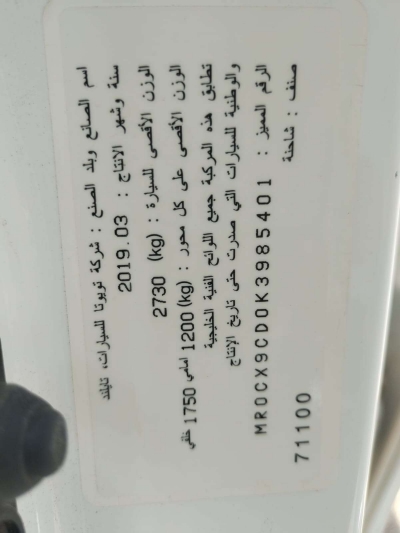 اسم الصانع وبلد الصنع : شركة تويوتا للسيارات، تايلند
سنة وشهر الانتاج : 2019.03
الوزن الأقصى للسيارة : 2730 (kg)
الوزن الأقصى على كل محور : (kg) 1200 امامي 1750 خلفي
تطابق هذه المركبة جميع اللوائح الفنية الخليجية
والوطنية للسيارات التي صدرت حتى تاريخ الإنتاج
الرقم المميز : MR0CX9CD0K3985401
صنف : شاحنة
71100